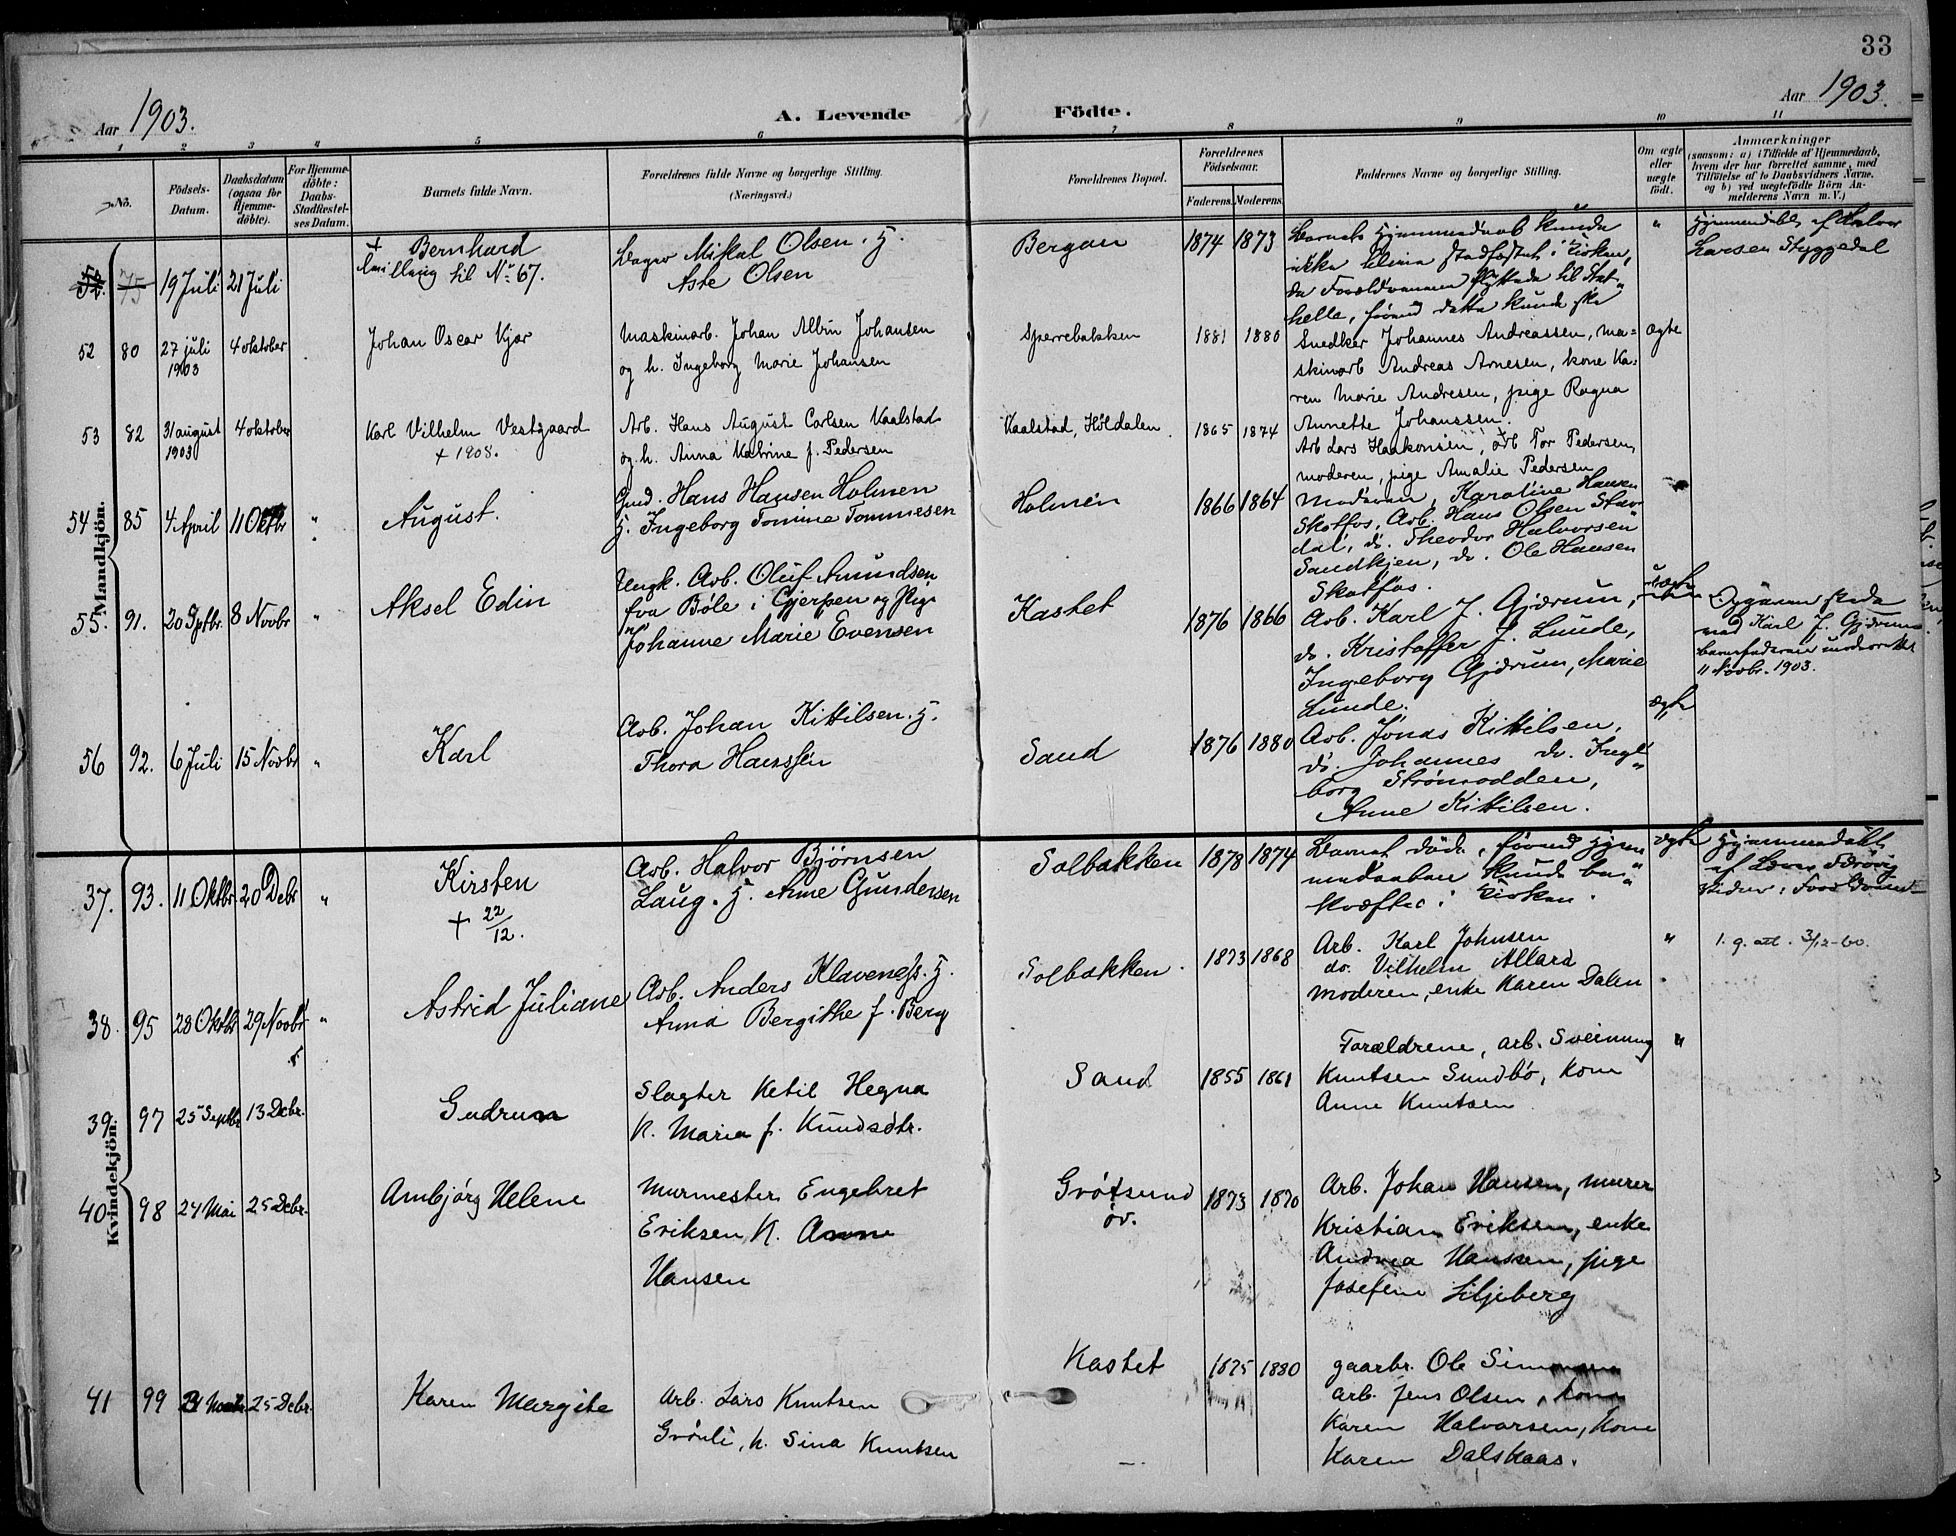 33
Aar 1903.
A. Levende Födte.
Aar 1903.
1 2 3 4 5 6 7 8 9 10 11
No.
Födsels-Datum.
Daabsdatum (ogsaa for Hjemme-döbte).
For Hjemme-döbte: Daabs-Stadfæstel-ses Datum.
Barnets fulde Navn.
Forældrenes fulde Navne og borgerlige Stilling.
(Næringsvei.)
Forældrenes Bopæl.
Forældrenes Födselsaar.
Faderens. Moderens.
Faddernes Navne og borgerlige Stilling.
Om ægte eller uægte født.
Anmærkninger
(saasom: a) i Tilfælde af Hjemmedaab,
hvem der har forrettet samme, med
Tilföielse af to Daabsvidners Navne,
og b) ved uægtefödte Börn An-
melderens Navn m. V.)
Mandkjön.
75 19 Juli 21 Juli
+ Bernhard
tvilling til No 67.
Mikal Olsen. H.
Aste Olsen
Bergan 1874 1873
Barnets Hjemmedaab kunde
ikke blive stadfæstet i Kirken,
da Forældrene flyttede til Stat-
helle, førend dette kunde ske
"
Hjemmedøbt af Halvor
Larsen Styggedal
52 80 27 juli 1903 4 oktober
Johan Oscar Kjær
Maskinarb. Johan Albin Johansen
og h. Ingeborg Marie Johansen
Sperrebakken 1881 1880
Snedker Johannes Andreassen, ma-
skinarb Andreas Arnesen, kone Ka-
ren Marie Andresen, pige Ragna
Annette Johanssen.
ægte
53 82 31 august 1903 4 oktober
Karl Vilhelm Vestgaard
+ 1908.
Arb. Hans August Carlsen Kaalstad
og h. Anna Katrine f. Pedersen
Kaalstad, Höldalen. 1865 1874
Arb Lars Haakonsen, arb Tor Pedersen,
moderen, pige Amalie Pedersen
54 85 4 April 11 Oktbr "
August.
Gmd. Hans Hansen Holmen
H. Ingeborg Tomine Tommesen
Holmen 1866 1864
Moderen, Karoline Hansen
Skotfos, Arb. Hans Olsen Stav-
dal, do. Theodor Halvorsen
Sandkjen, do. Ole Hansen
Skotfos.
55. 91. 20 Sptbr. 8 Novbr "
Aksel Edin
Ungk. Arb. Oluf Amundsen
fra Bøle i Gjerpen og Pige
Johanne Marie Evensen
Kastet 1876 1866
Arb. Karl J. Gjærum,
do. Kristoffer J. Lunde,
Ingeborg Gjærum, Marie
Lunde.
uægte
Opgaven skede
ved Karl J. Gjærum
barnefaderen underrettet
11 Novbr. 1903.
56 92. 6 Juli 15 Novbr "
Karl
Arb. Johan Kittilsen. H.
Thora Hanssen
Sand 1876 1880
Arb. Jonas Kittilsen,
do. Johannes do. Inge-
borg Strømodden,
Anne Kittilsen.
ægte
Kvindekjön.
37. 93. 11 Oktbr. 20 Debr "
Kirsten
+ 22/12.
Arb. Halvor Bjørnsen
Laug. H. Anne Gundersen
Solbakken 1878 1874
Barnet døde, førend Hjem-
medaaben kunde be-
kræftes i Kirken.
ægte
Hjemmedøbt
38. 95 28 Oktbr 29 Novbr "
Astrid Juliane
Arb. Anders Klavenes. H.
Anna Bergithe f. Berg
Solbakken. 1873 1868
Arb. Karl Johnsen
do. Vilhelm Allard
Moderen, enke Karen Dalen
"
1. g. att. 3/12-60.
39. 97 25 Septbr 13 Debr.
Gudrun
Slagter Ketil Hegna
H. Maria f. Knudsdtr.
Sand 1855 1861
Forældrene, arb. Sveinung
Knutsen Sundbö, kone
Anne Knutsen
"
40 98 24 Mai 25 Debr.
Ambjörg Helene
Murmester Engebret
Eriksen, H. Anne
Hansen
Grötsund
öv. 1873 1870
Arb. Johan Hansen, murer
Kristian Eriksen, enke
Andrea Hansen, pige
Josefine Liljeberg
41 99 25 Debr.
Karen Margite
Arb. Lars Knutsen
Grönli, h. Sina Knutsen
Kastet 1875 1880
gaarbr. Ole
arb. Jens Olsen, kone
Karen Halvorsen, kone
Karen Dalskaas.